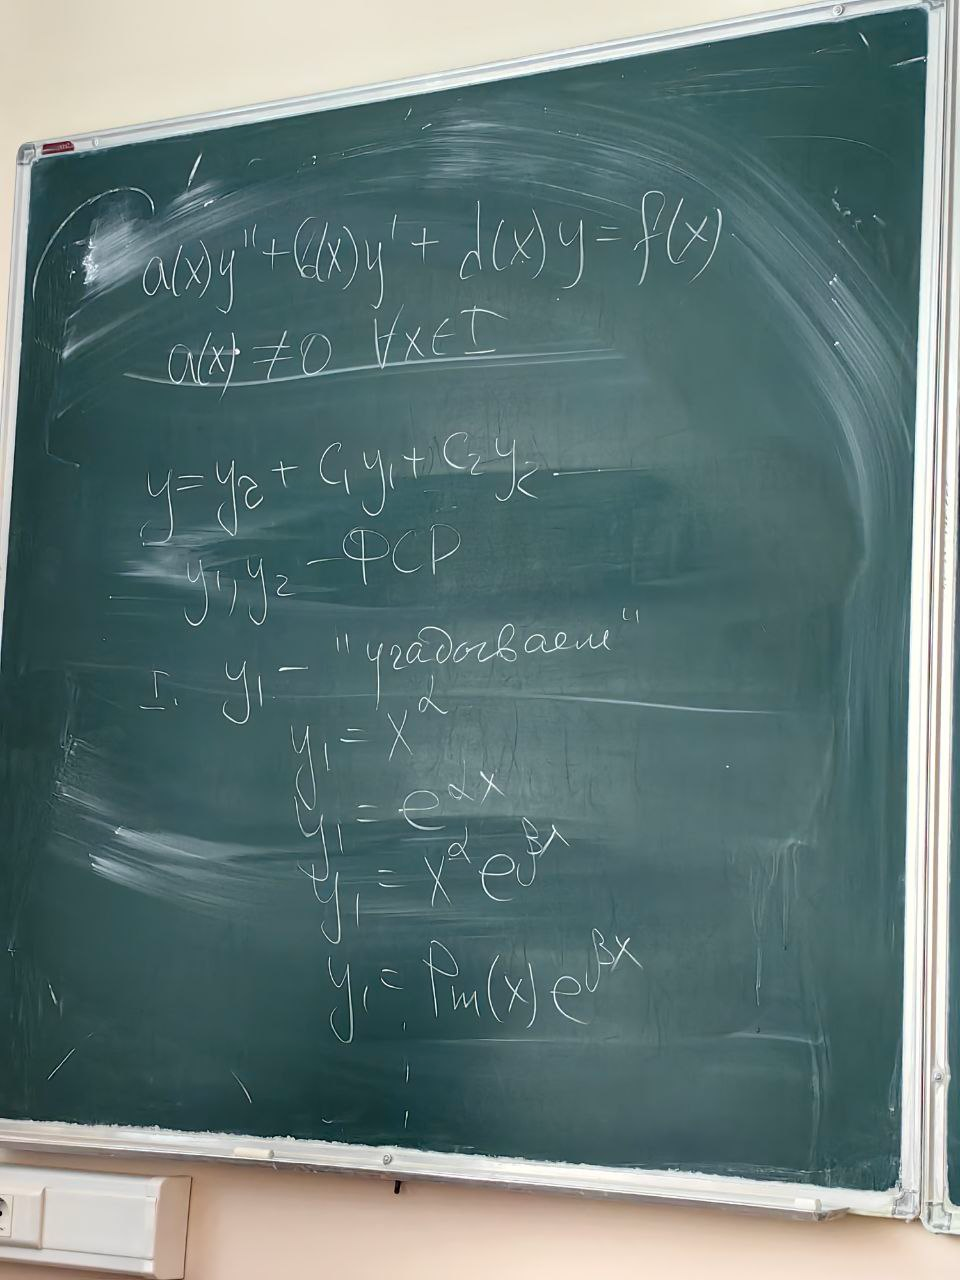 a(x)y" + b(x)y' + d(x)y = f(x)
a(x) ≠ 0 ∀x∈I
y = y₂ + C₁y₁ + C₂y₂
y₁, y₂ – ФСР
I. y₁ – "угадываем"
y₁ = x^α
y₁ = e^{αx}
y₁ = x^α e^{βx}
y₁ = Pm(x) e^{βx}